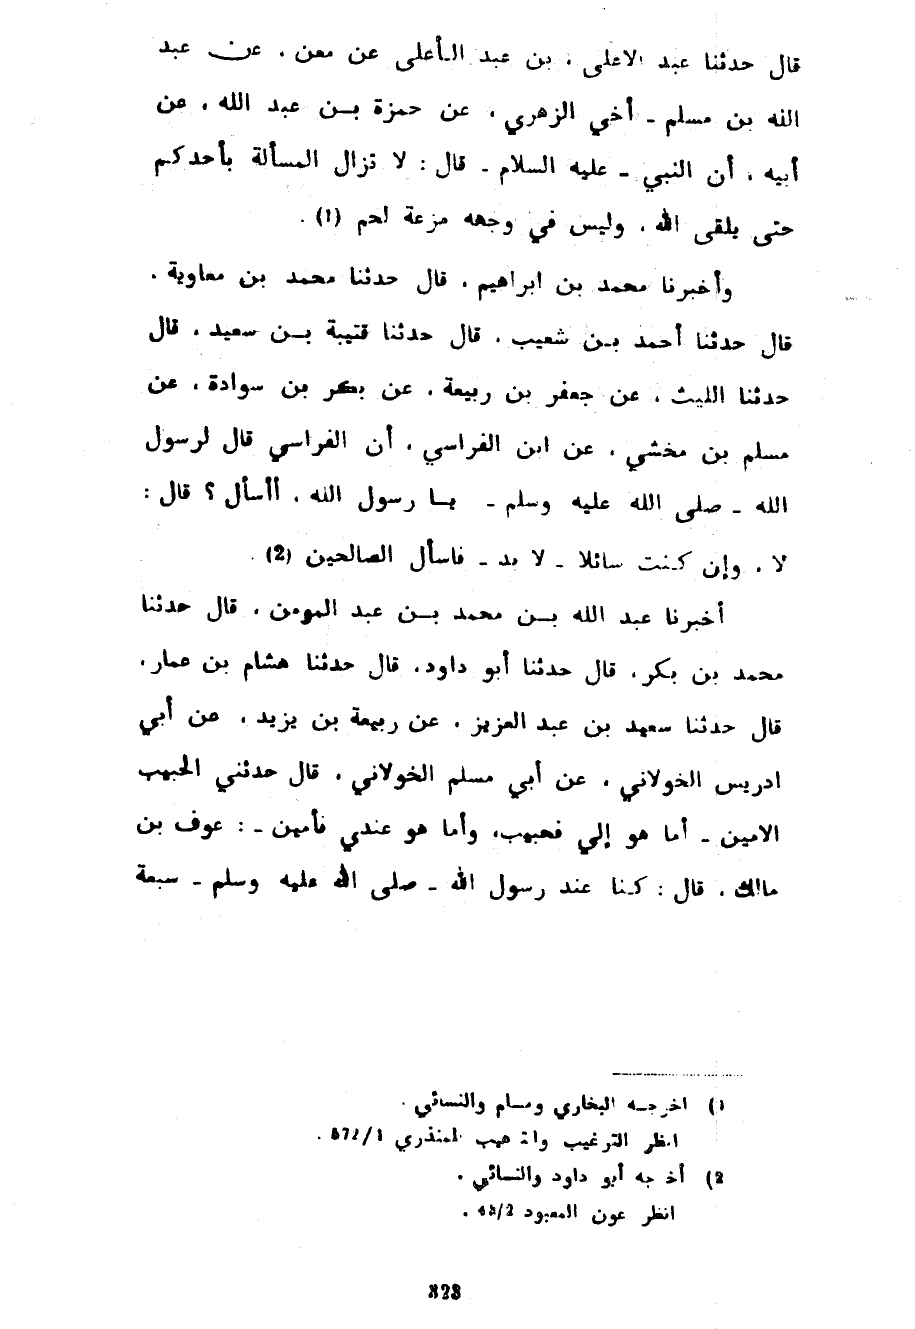 قال حدثنا عبد الاعلى ، بن عبد الأعلى عن معن ، عن عبد
الله بن مسلم ـ أخي الزهري ، عن حمزة بن عبد الله ، عن
أبيه ، أن النبي ـ عليه السلام ـ قال : لا تزال المسألة بأحدكم
حتى يلقى الله ، وليس في وجهه مزعة لحم (1) .
وأخبرنا محمد بن ابراهيم ، قال حدثنا محمد بن معاوية .
قال حدثنا أحمد بن شعيب ، قال حدثنا قتيبة بن سعيد ، قال
حدثنا الليث ، عن جعفر بن ربيعة ، عن بكر بن سوادة ، عن
مسلم بن مخشي ، عن ابن الفراسي ، أن الفراسي قال لرسول
الله ـ صلى الله عليه وسلم ـ يا رسول الله ، أأسأل ؟ قال :
لا ، وإن كنت سائلا ـ لا بد ـ فاسأل الصالحين (2) .
أخبرنا عبد الله بن محمد بن عبد المومن ، قال حدثنا
محمد بن بكر ، قال حدثنا أبو داود ، قال حدثنا هشام بن عمار ،
قال حدثنا سعيد بن عبد العزيز ، عن ربيعة بن يزيد ، عن أبي
ادريس الخولاني ، عن أبي مسلم الخولاني ، قال حدثني الحبيب
الامين ـ أما هو إلي فحبيب ، وأما هو عندي فأمين ـ : عوف بن
مالك ، قال : كنا عند رسول الله ـ صلى الله عليه وسلم ـ سبعة
1) اخرجه البخاري ومسلم والنسائي .
انظر الترغيب والترهيب للمنذري 1/572 .
2) أخرجه أبو داود والنسائي .
انظر عون المعبود .
323